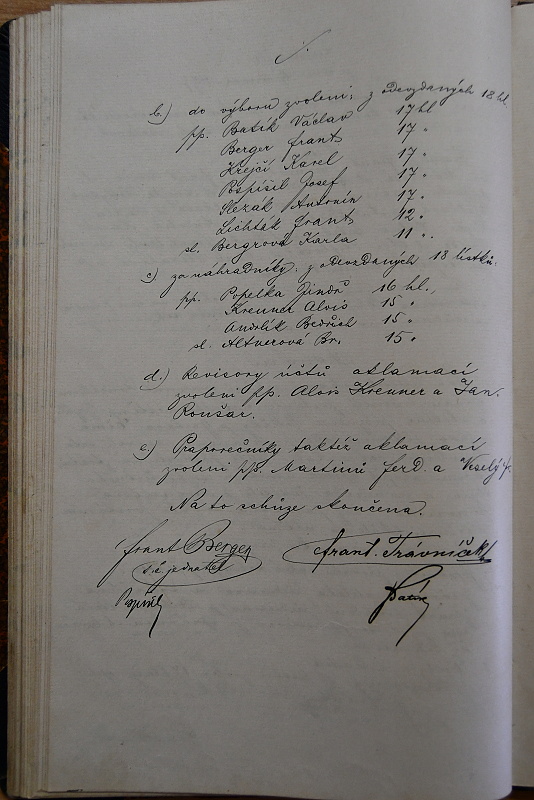 b.) do výboru zvoleni; z odevzdaných 18 hl.
pp. Batík Václav 17 hl
Berger Frant 17 "
Krejčí Karel 17 "
Pospíšil Josef 17 "
Slezák Antonín 17 "
Lichták Frant 12 "
sl. Bergrová Karla 11 "
c) za náhradníky: z odevzdaných 18 lístků.
pp. Popelka Jindř 16 hl.,
Krenner Alois 15 "
Andrlík Bedřich 15 "
sl. Altnerová Br. 15 "
d.) Revisory účtů aklamací
zvoleni pp. Alois Krenner a Jan
Roušar.
e.) Praporečníky taktéž aklamací
zvoleni pp. Martinů Ferd. a Veselý
Na to schůze skončena.
Frant Berger Frant. Trávníček
t.č. jednatel
Pospíšil Batík